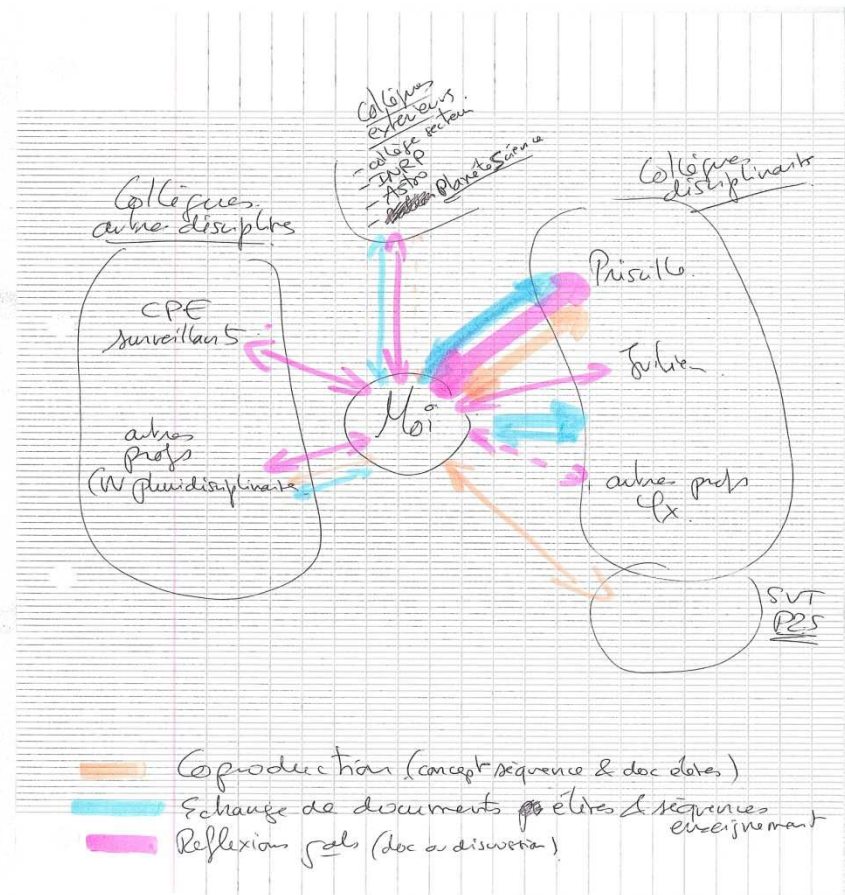 Collègues
extérieurs.
- collège secteur
- INRP
- Astro
- Planète Science
Collègues
autres disciplines
CPE
surveillants
autres
profs
(W pluridisciplinaire
Moi
Collègues
disciplinaire
Priscille
Julien
autres profs
φx.
SVT
P2S
Coproduction (concept séquence & doc élèves)
Echange de documents élèves & séquences
enseignement
Réflexions gals (doc ou discussion)